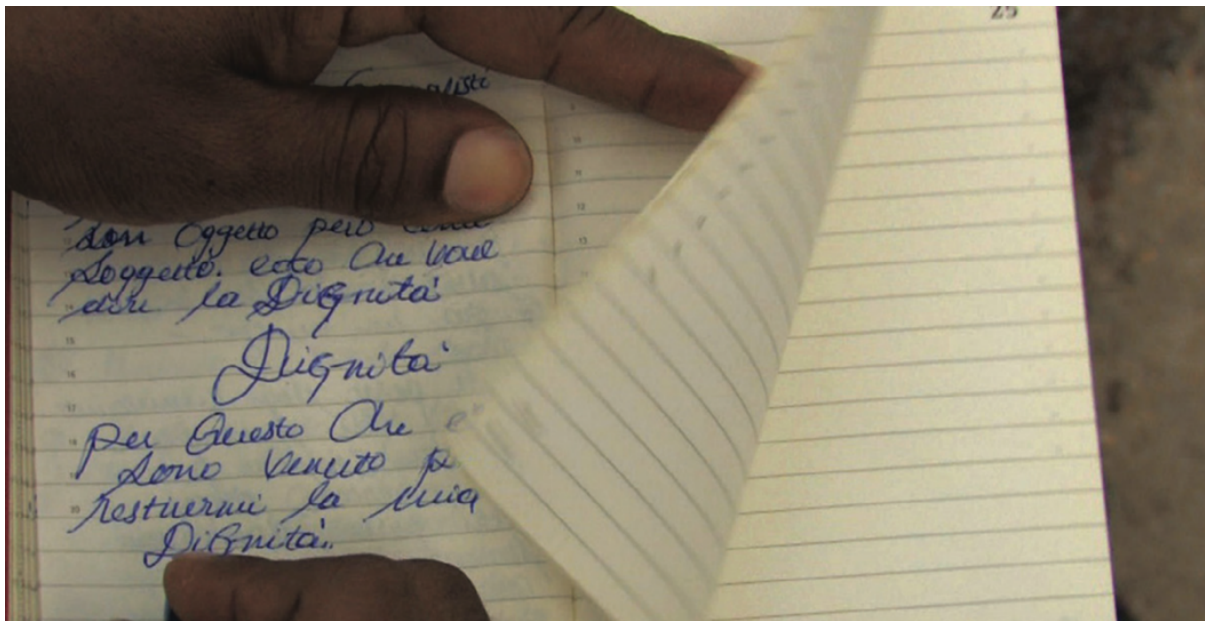 25
don oggetto però
Soggetto. ecco Che vuol
dire la Dignità
Dignità
per Questo Che
sono venuto
restuermi la mia
Dignità.